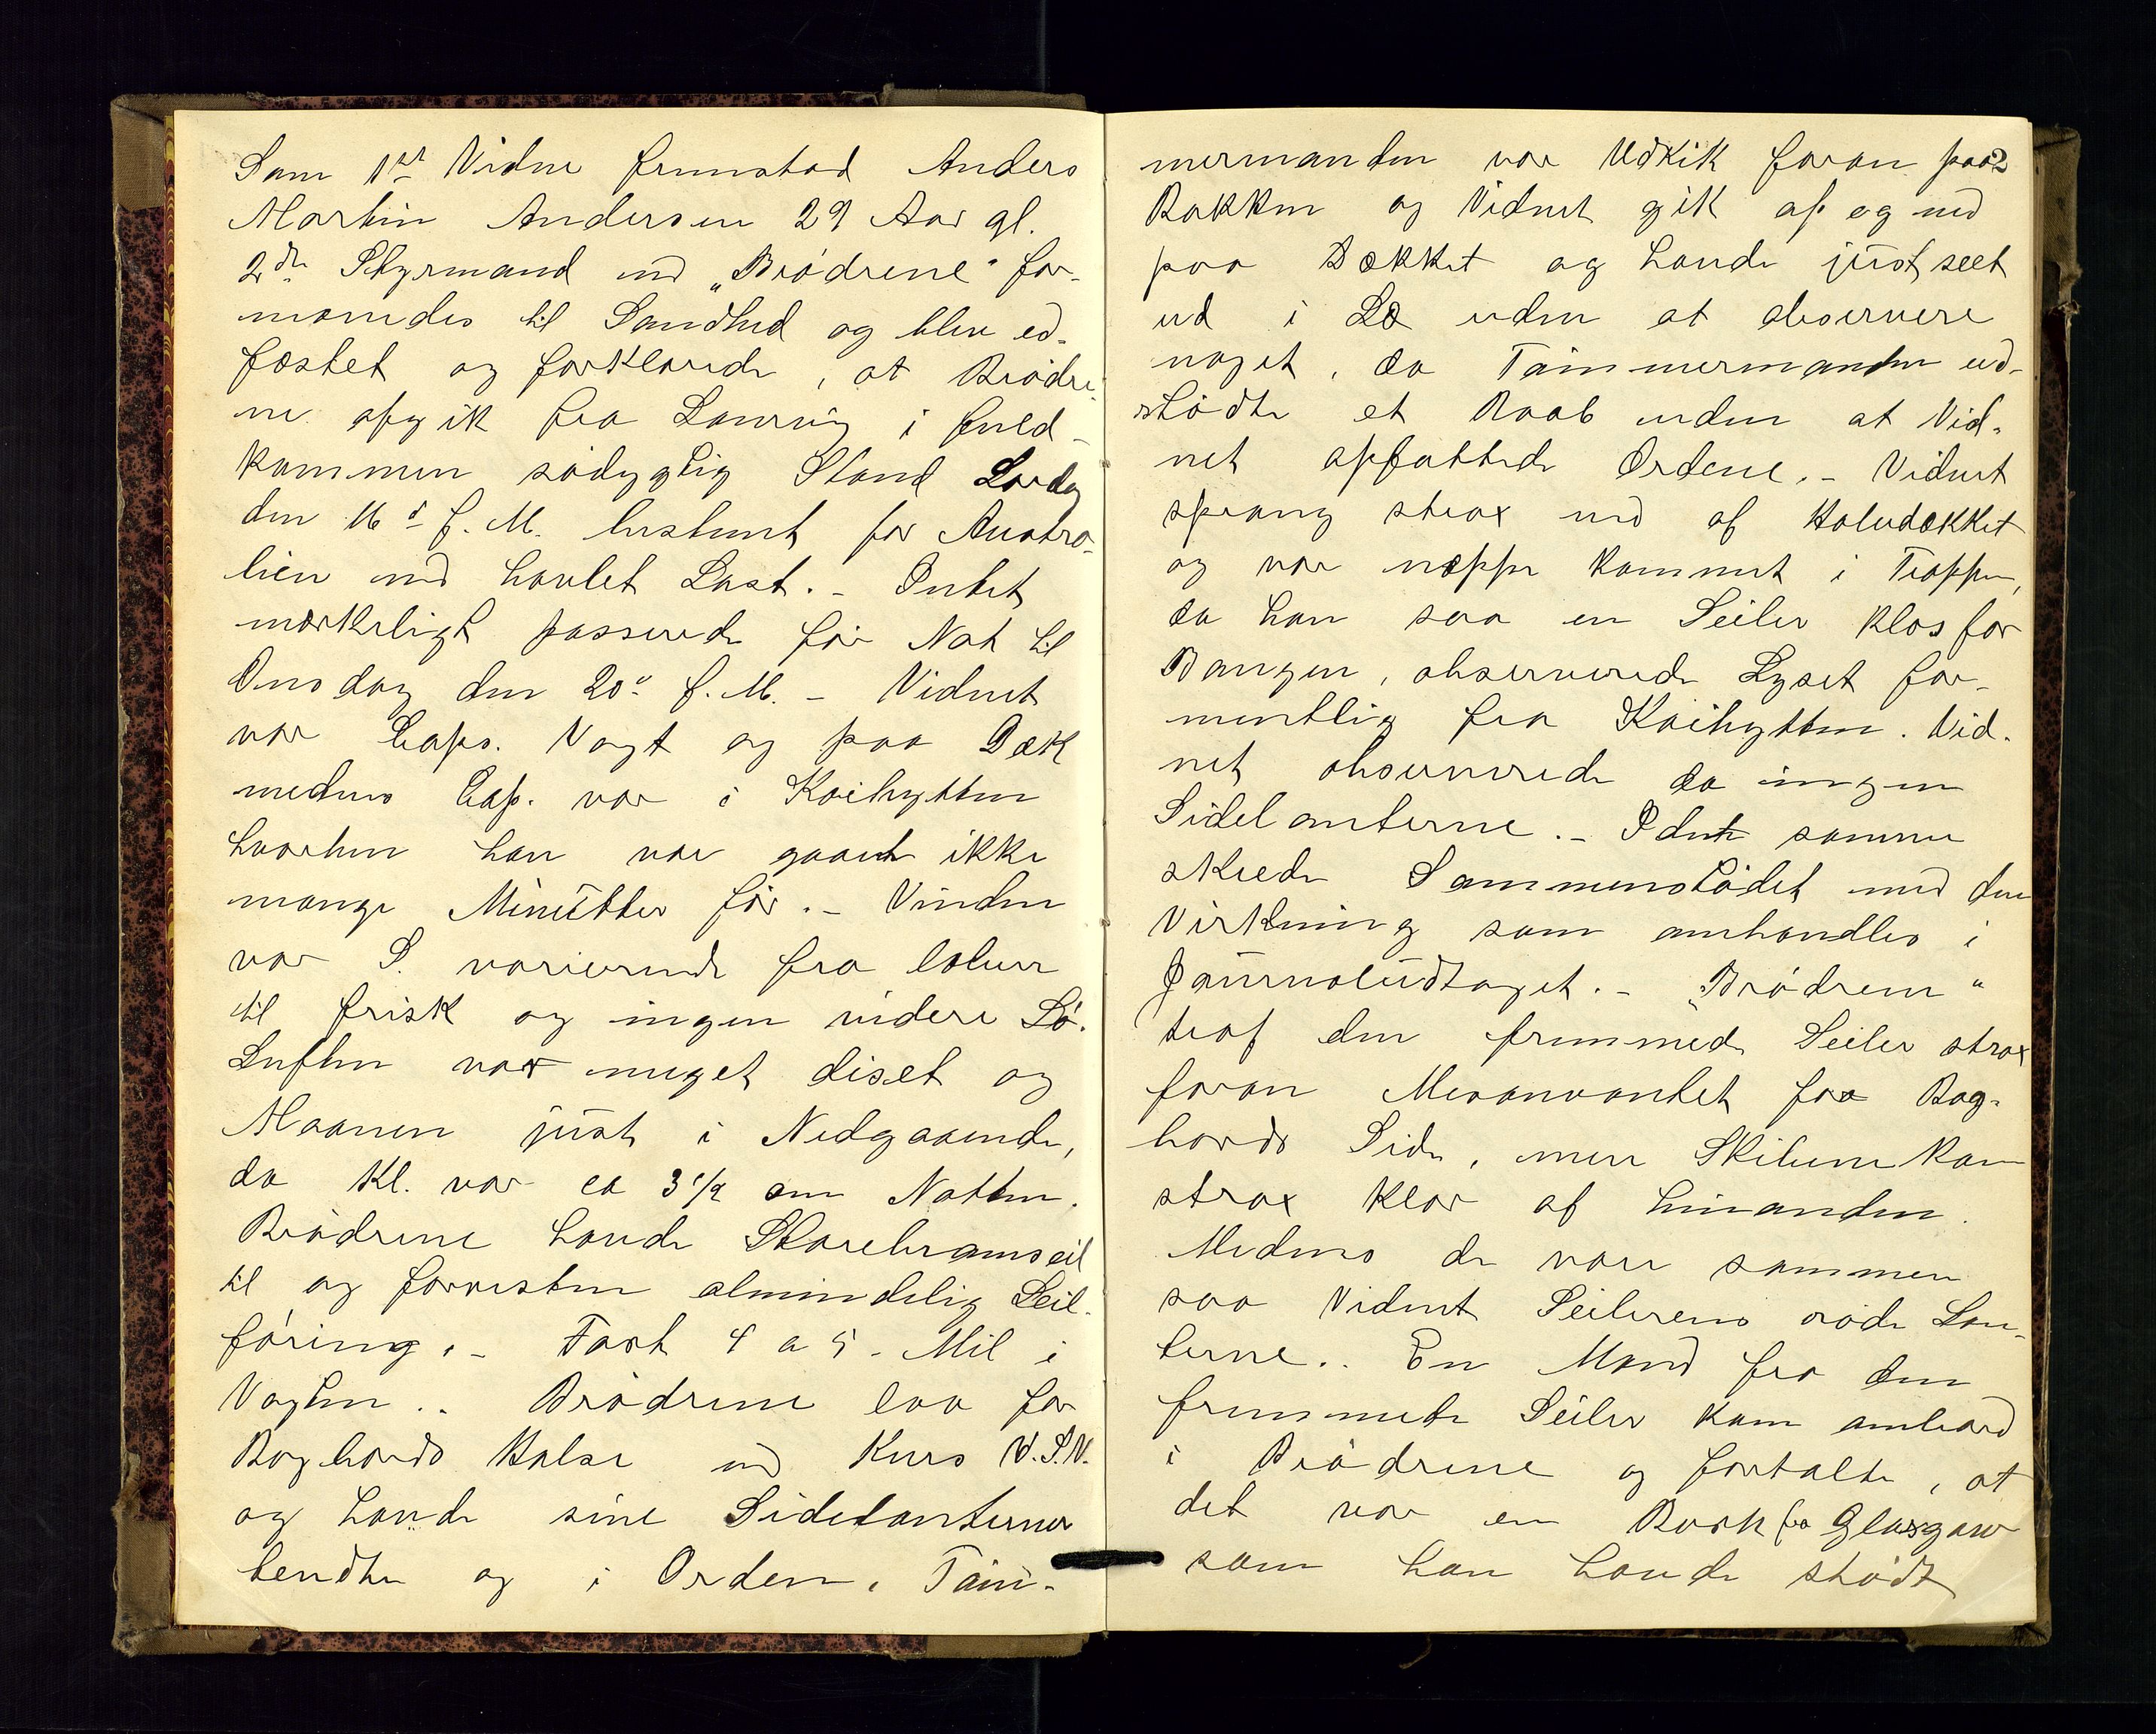 Som 1ste Vidne fremstod Anders
Martin Andersen 29 Aar gl.
2den Styrmand med "Brødrene" for-
manedes til Sandhed og blev ed-
fæstet og forklarede, at Brødre-
ne afgik fra Laurvig i fuld-
kommen sødygtig Stand Lørdag
den 16d f. M. bestemt for Austra-
lien med høvlet Last. - Intet
mærkeligt passerede før Nat til
Onsdag den 20d f. M. - Vidnet
var Caps. Vagt og paa Dæk
medens Cap. var i Kaihytten
hvorhen han var gaaet ikke
mange Minutter før. - Vinden
var S. varierende fra laber
til frisk og ingen videre Sø.
Luften var meget diset og
Maanen just i Nedgaaende,
da Kl. var ca 3 1/2 om Natten.
Brødrene havde Storebramseil
til og forresten almindelig Seil-
føring. - Fart 4 a 5 Mil i
Vagten. - Brødrene laa for
Bagbords Halse med Kurs V.S.V.
og havde sine Sidelanterner
tændte og i Orden. Tøm-
mermanden var Udkik foran paa 2
Bakken og Vidnet gik af og ned
paa Dækket og havde just seet
ud i Læ uden at observere
noget, da Tømmermanden ud-
stødte et Raab uden at Vid-
net opfattede Ordene. - Vidnet
sprang strax ned af Halvdækket
og var næppe kommet i Trappen,
da han saa en Seiler klos for
Bougen, observerede Lyset for-
mentlig fra Kaihytten. Vid-
net observerede da ingen
Sidelanterne. - I det samme
skede Sammenstødet med den
Virkning som omhandles i
Journaludtoget. - "Brødrene"
traf den fremmede Seiler strax
foran Mesanvantet fra Bag-
bords Side, men Skibene kom
strax klar af hinanden.
Medens de vare sammen
saa Vidnet Seilerens røde Lan-
terne. - En Mand fra den
fremmede Seiler kom ombord
i Brødrene og fortalte, at
det var en Bark fra Glasgow
som han havde stødt